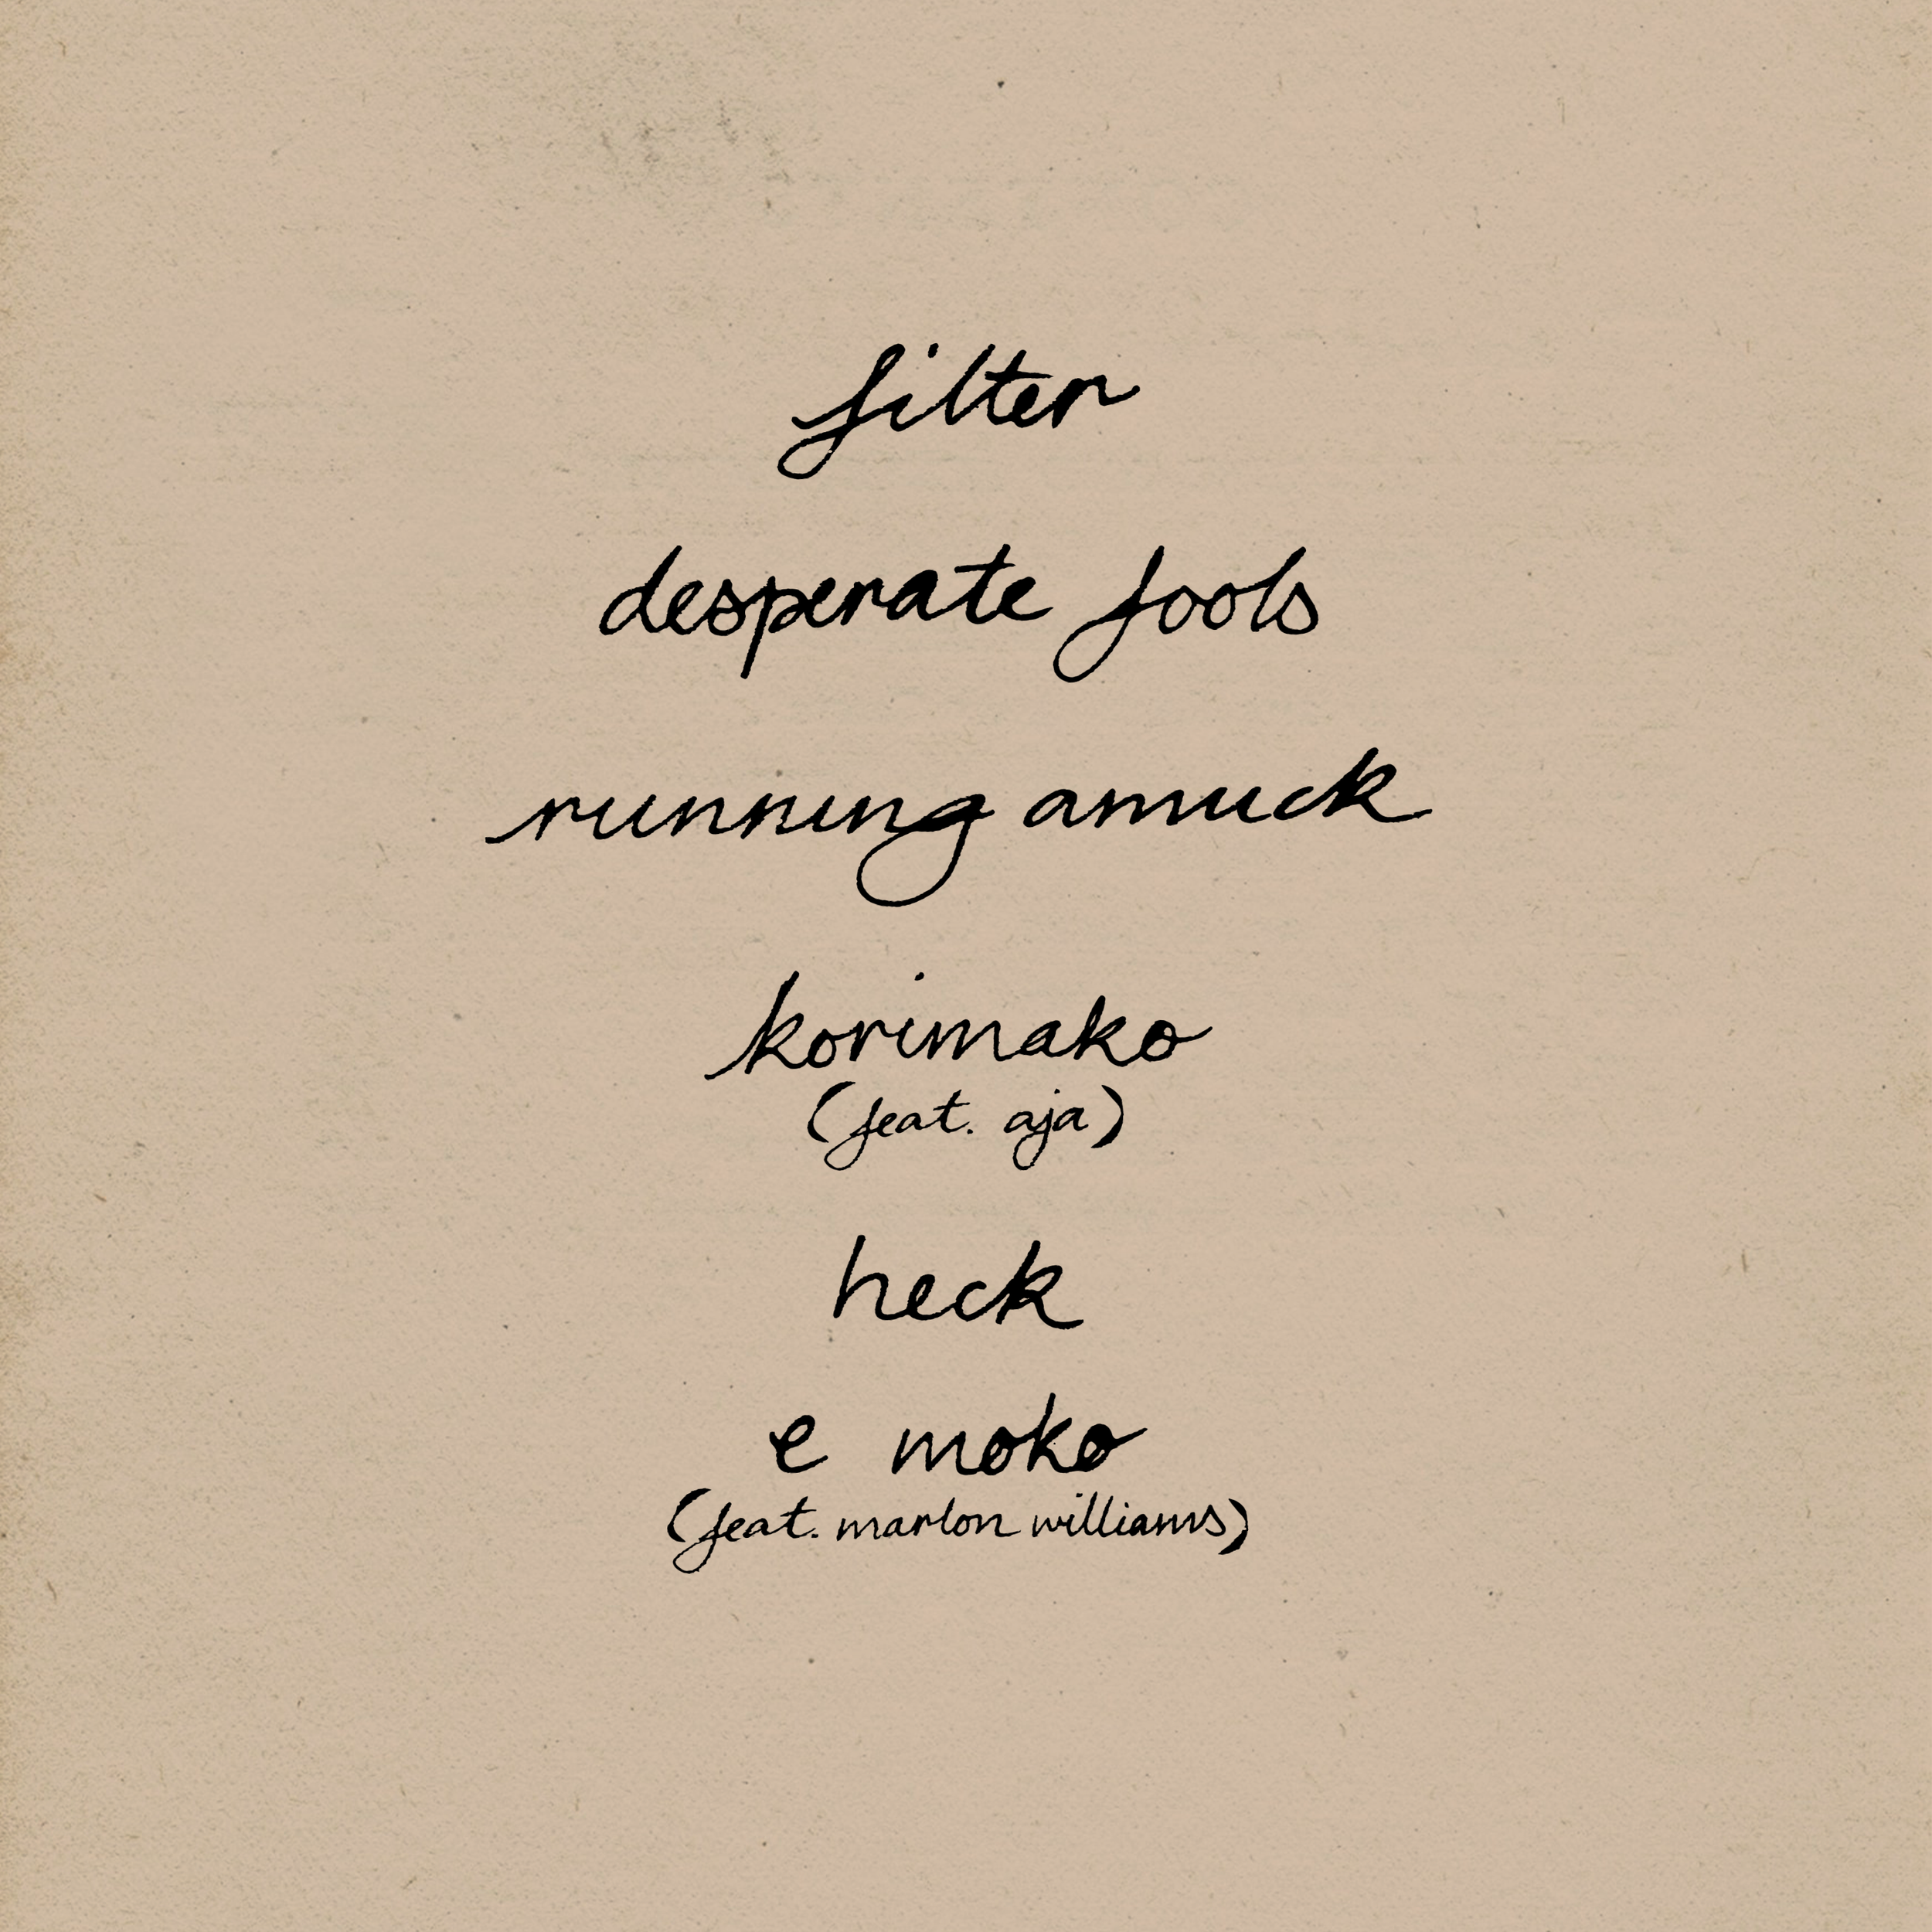 filter
desperate fools
running amuck
korimako
(feat. aja)
heck
e moko
(feat. marlon williams)